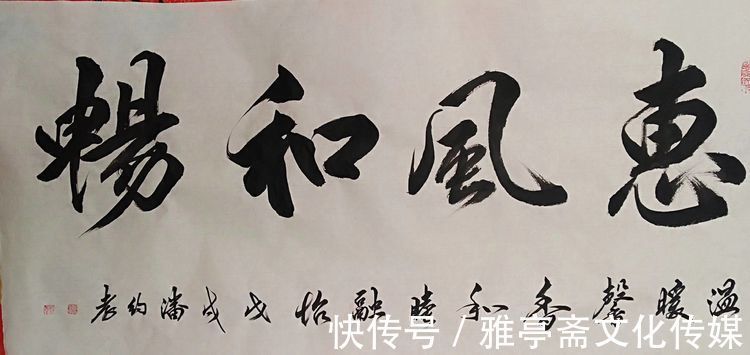 惠風和暢
溫暖馨香和睦融怡戊戌潘約
快传号 / 雅亭斋文化传媒